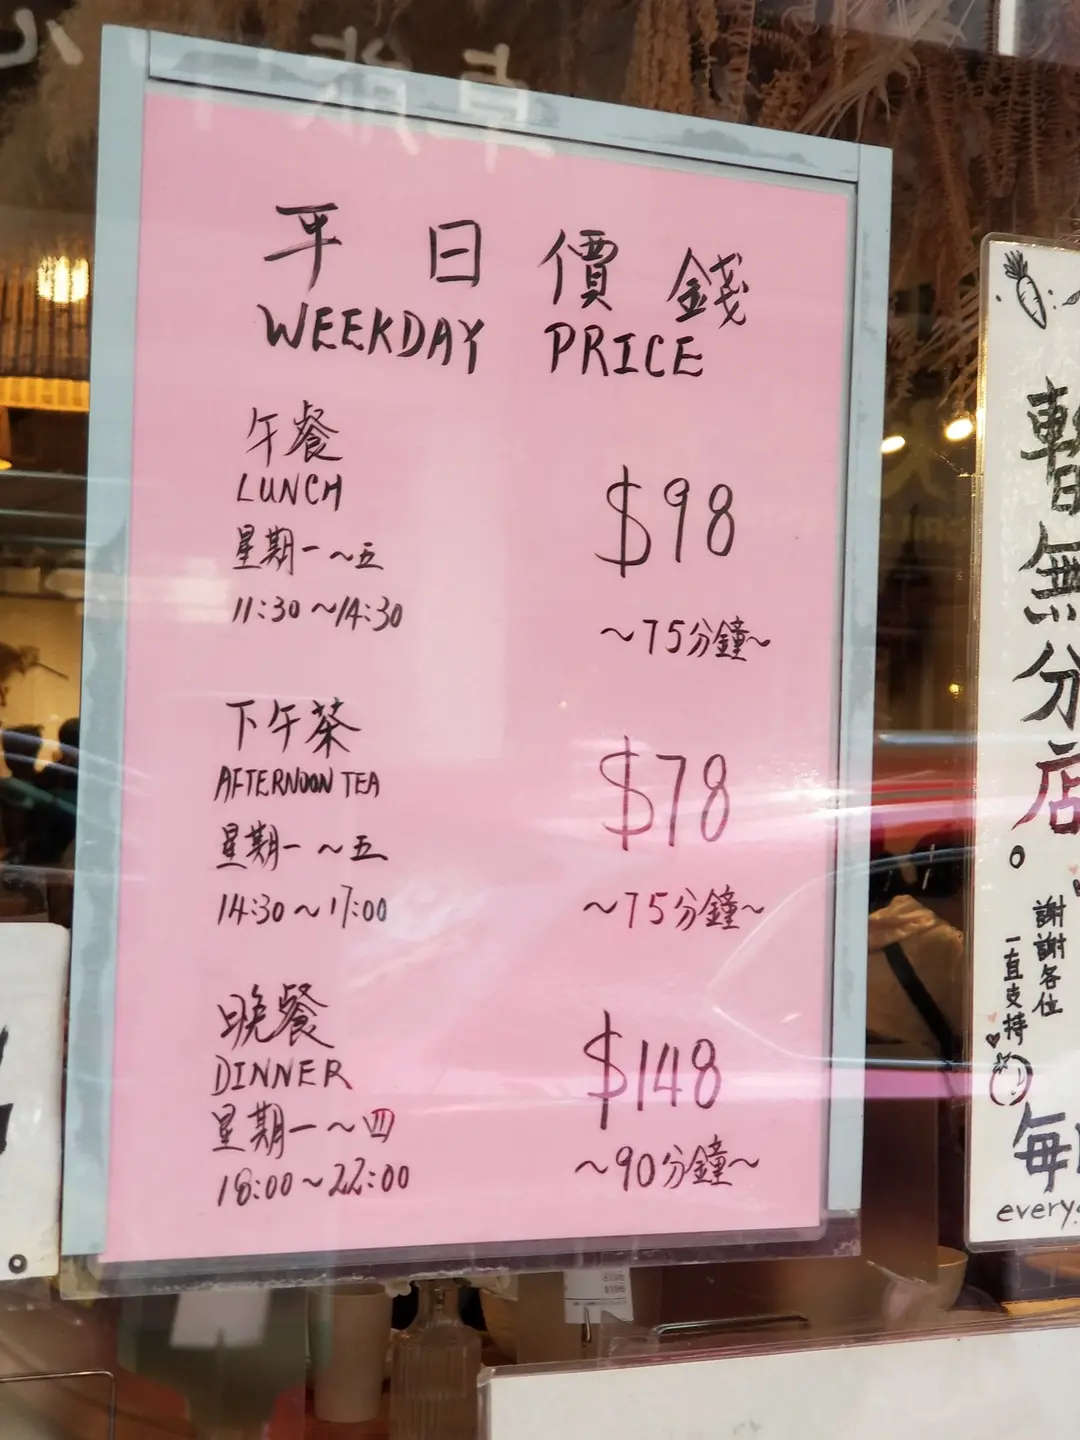 平日價錢
WEEKDAY PRICE
午餐
LUNCH
星期一~五
11:30~14:30
$98
~75分鐘~
下午茶
AFTERNOON TEA
星期一~五
14:30~17:00
$78
~75分鐘~
晚餐
DINNER
星期一~四
18:00~22:00
$148
~90分鐘~
暫無分店。
謝謝各位
一直支持
每
every